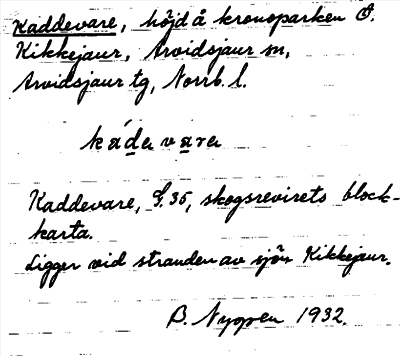 Kaddevare, höjd å kronoparken Ö.
Kikkejaur, Arvidsjaur sn,
Arvidsjaur tg, Norrb. l.
káda vara
Kaddevare, G. 35, skogsrevirets block-
karta.
Ligger vid stranden av sjön Kikkejaur.
B. Nygren 1932.